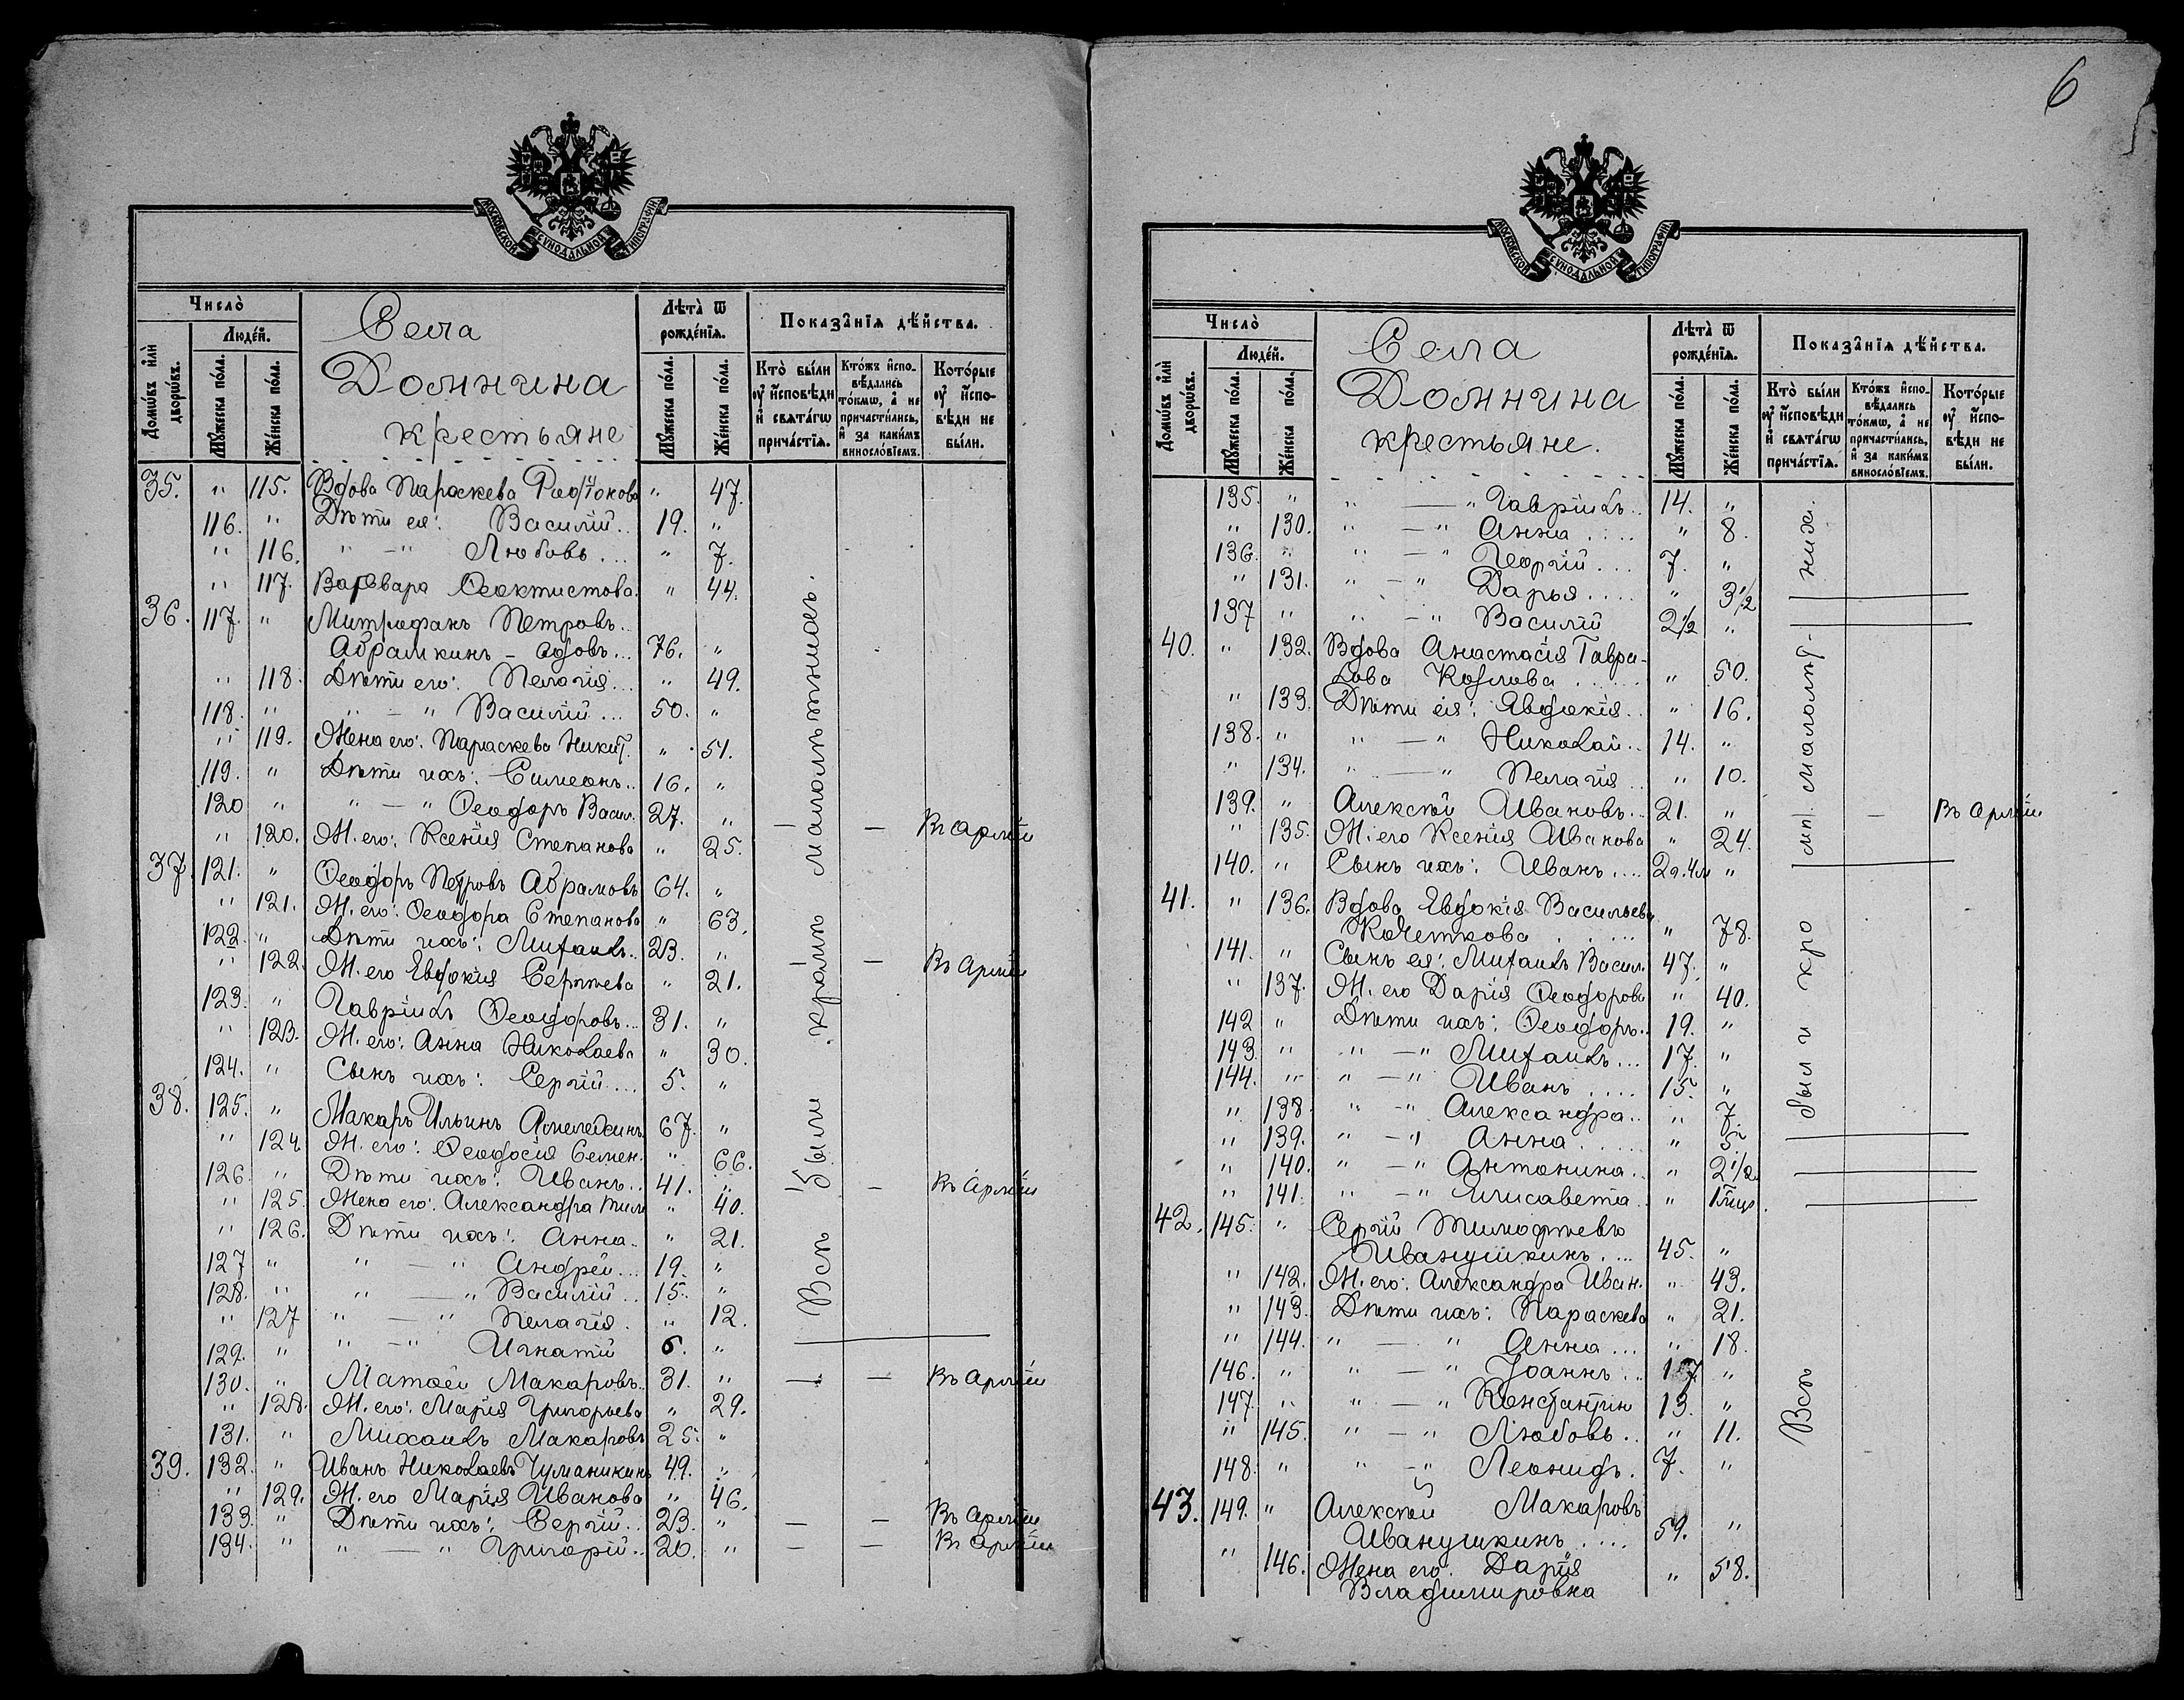 МОСКОВСКОЙ СѴНОДАЛЬНОЙ ТИПОГРАФІИ
Число̀
Домѡ́въ и҆лѝ дворѡ́въ.
Люде́й.
Мꙋ́жеска по́ла.
Же́нска по́ла.
Села
Домнина
крестьяне
Лѣта̀ ѿ рожде́нїѧ.
Мꙋ́жеска по́ла.
Же́нска по́ла.
Показа̑нїѧ дѣ́йства.
Кто̀ бы́ли оу҆ и҆сповѣди и҆ свѧта́гѡ прича́стїѧ.
Кто́жъ и҆сповѣ́дались то́кмѡ, а҆ не причасти́лись, и҆ за каки́мъ винослові́емъ.
Кото́рые оу҆ и҆сповѣди не бы́ли.
35. " 115. Вдова Параскева " 47.
116. " Дѣти ея: Василій.. 19. "
" 116. " — " Любовь... " 7.
" 117. Варвара Ѳеоктистова. " 44.
36. 117. " Митрофанъ Петровъ
Абрамкинъ - вдовъ... 76. "
" 118. Дѣти его: Пелагія... " 49.
118. " " — " Василій... 50. "
" 119. Жена его: Параскева Никит. " 51.
119. " Дѣти ихъ: Симеонъ.. 16. "
120 " " — " Ѳеодоръ Васил. 27. " — — Въ арміи
" 120. Ж. его: Ксенія Степанова " 25.
37. 121. " Ѳеодоръ Петровъ Абрамовъ 64. "
" 121. Ж. его: Ѳеодора Степанова " 63.
122. " Дѣти ихъ: Михаилъ.. 23. " — — Въ Арміи
" 122. Ж. его Евдокія Сергѣева " 21.
123. " Гавріилъ Ѳеодоровъ... 31. "
" 123. Ж. его: Анна Николаева " 30.
124. " Сынъ ихъ: Сергій.... 5. "
38. 125. " Макаръ Ильинъ 67. "
" 124. Ж. его: Ѳеодосія Семен. " 66.
126. " Дѣти ихъ: Иванъ.. 41. " — — Въ Арміи
" 125. Жена его: Александра Тим. " 40.
" 126. Дѣти ихъ: Анна.. " 21.
127 " " — " Андрей... 19. "
128. " " — " Василій.. 15. "
" 127 " — " Пелагія. " 12.
129. " " — " Игнатій 6. "
130. " Матѳей Макаровъ.. 31. " — — Въ Арміи
" 128. Ж. его: Марія Григорьева " 29.
131. " Михаилъ Макаровъ 25. "
39. 132. " Иванъ Николаевъ Чуманикинъ 49. "
" 129. Ж. его Марія Иванова " 46.
133. " Дѣти ихъ: Сергій.. 23. " — — Въ Арміи
134. " " — " Григорій.. 20. " — — Въ Арміи
Всѣ были кромѣ малолѣтнихъ.
6
МОСКОВСКОЙ СѴНОДАЛЬНОЙ ТИПОГРАФІИ
Число̀
Домѡ́въ и҆лѝ дворѡ́въ.
Люде́й.
Мꙋ́жеска по́ла.
Же́нска по́ла.
Села
Домнина
крестьяне.
Лѣта̀ ѿ рожде́нїѧ.
Мꙋ́жеска по́ла.
Же́нска по́ла.
Показа̑нїѧ дѣ́йства.
Кто̀ бы́ли оу҆ и҆сповѣди и҆ свѧта́гѡ прича́стїѧ.
Кто́жъ и҆сповѣ́дались то́кмѡ, а҆ не причасти́лись, и҆ за каки́мъ винослові́емъ.
Кото́рые оу҆ и҆сповѣди не бы́ли.
135. " " — " Гавріилъ.. 14. "
" 130. " — " Анна .... " 8.
136. " " — " Георгій... 7. "
" 131. " — " Дарья.... " 3½
137 " " — " Василій 2½ "
40. " 132. Вдова Анастасія Гаври-
лова Козлова ...... " 50.
" 133. Дѣти ея: Евдокія.. " 16.
138. " " — " Николай.. 14. "
" 134. " — " Пелагія .. " 10.
139. " Алексѣй Ивановъ.. 21. " — Въ Арміи
" 135. Ж. его Ксенія Иванова " 24.
140. " Сынъ ихъ: Иванъ.... 2г. 4м "
41. " 136. Вдова Евдокія Васильева
Кочеткова ..... " 78.
141. " Сынъ ея: Михаилъ Васил. 47. "
" 137. Ж. его Дарія Ѳеодорова " 40.
142 " Дѣти ихъ: Ѳеодоръ.. 19. "
143. " " — " Михаилъ... 17. "
144. " " — " Иванъ .... 15. "
" 138 " — " Александра.. " 7.
" 139. " — " Анна..... " 5
" 140. " — " Антонина.. " 2½
" 141. " — " Елисавета.. "
42. 145. " Сергій Тимоѳѣевъ
Иванушкинъ.... 45. "
" 142. Ж. его: Александра Иван. " 43.
" 143. Дѣти ихъ: Параскева " 21.
" 144. " — " Анна... " 18.
146. " " — " Іоаннъ.. 17. "
147. " " — " Константин 13. "
" 145. " — " Любовь.. " 11.
148. " " — " Леонидъ. 7. "
43. 149. " Алексѣй Макаровъ
Иванушкинъ .... 59. "
" 146. Жена его: Дарія
Владимировна " 58.
Всѣ были кро мѣ малолѣт- нихъ.